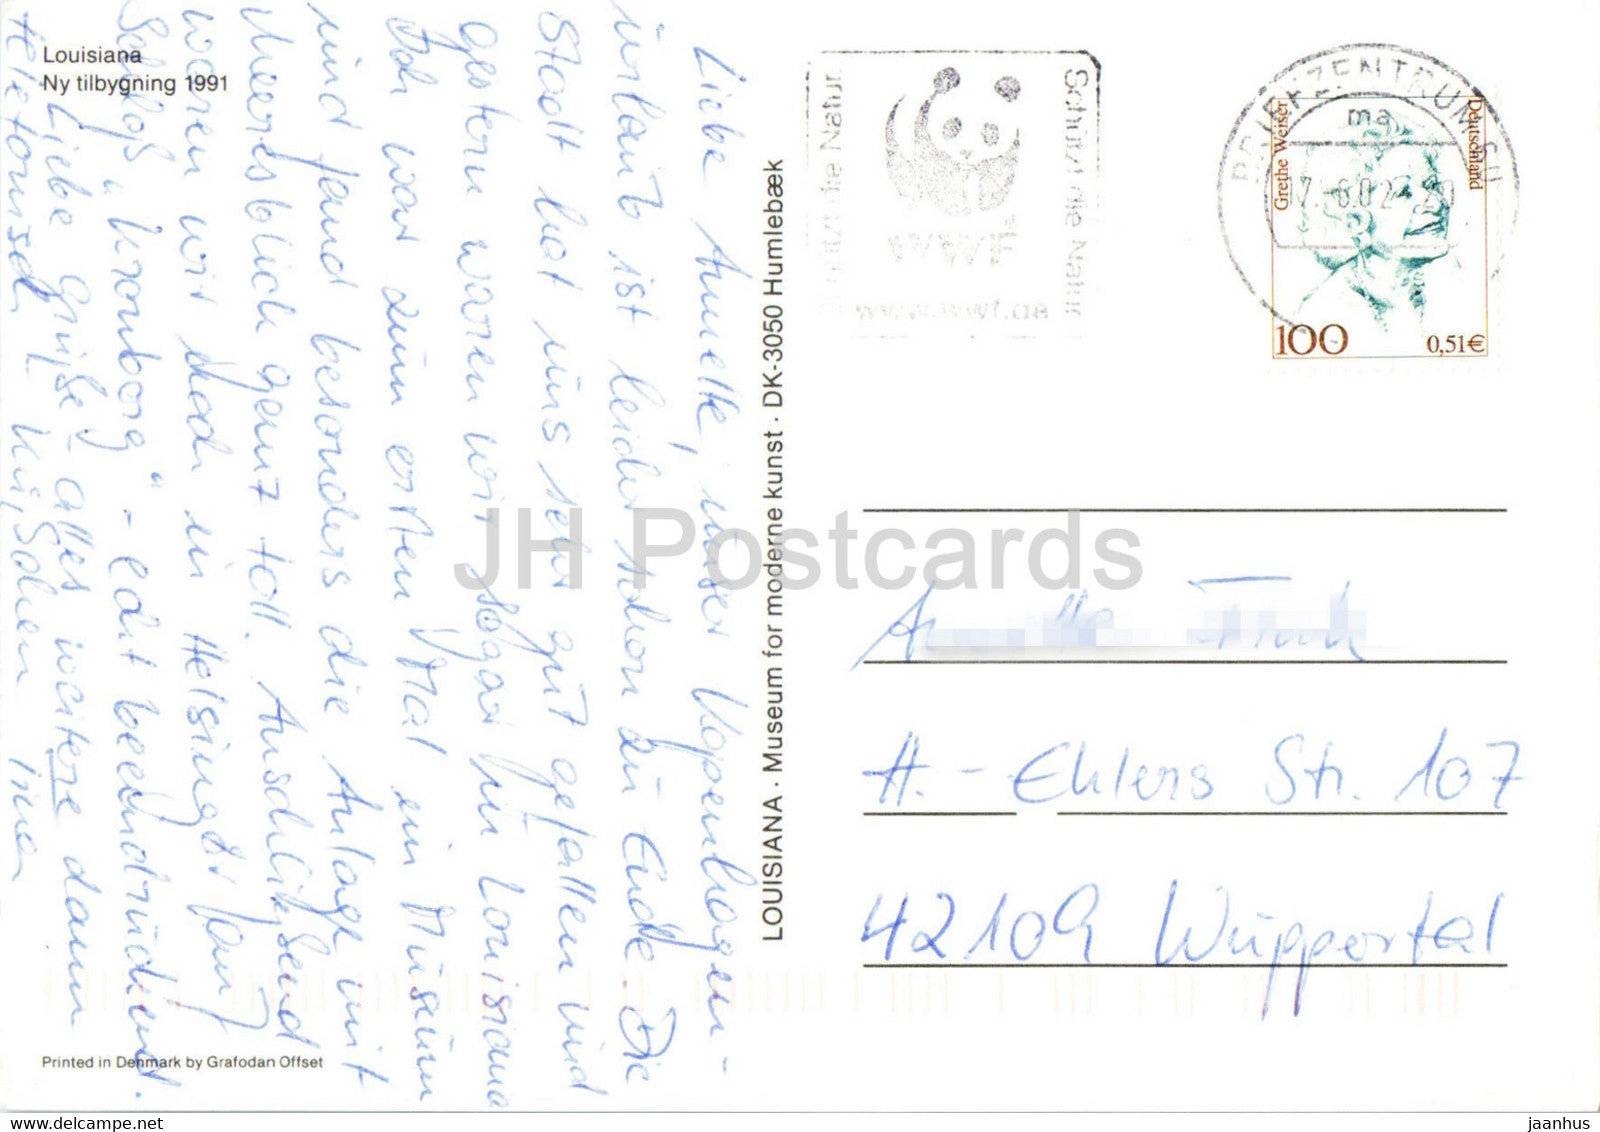 Louisiana
Ny tilbygning 1991
Liebe Annette, unser Kopenhagen-
urlaub ist leider schon zu Ende. Die
Stadt hat uns sehr gut gefallen und
gestern waren wir sogar in Louisiana
Ich war zum ersten Mal im Museum
und fand besonders die Anlage mit
Meeresblick ganz toll. Anschließend
waren wir noch in Helsingør
Schloß „Kronborg“ - echt beeindruckend.
Liebe Grüße alles weitere dann
telefonisch
LOUISIANA · Museum for moderne kunst · DK-3050 Humlebæk
Printed in Denmark by Grafodan Offset
Schützt die Natur
WWF
Schützt die Natur
www.wwf.de
BRIEFZENTRUM
ma
Grethe Weiser
Deutschland
100
0,51€
H. - Ehlers Str. 107
42109 Wuppertal
JH Postcards
www.delcampe.net
jaanhus